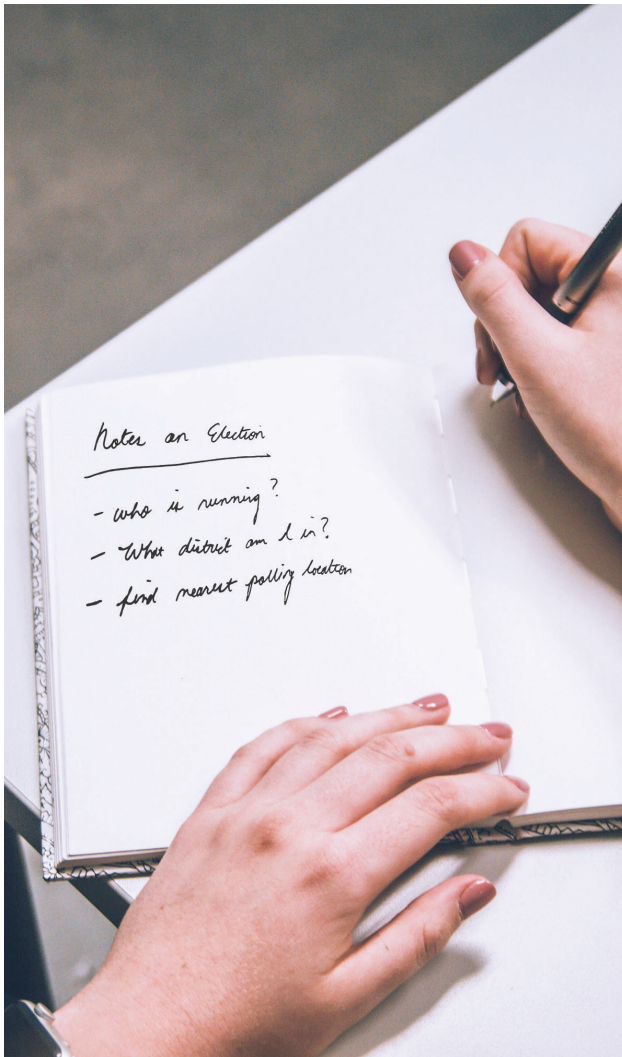 Notes on Election
- who is running?
- What district am I in?
- find nearest polling location